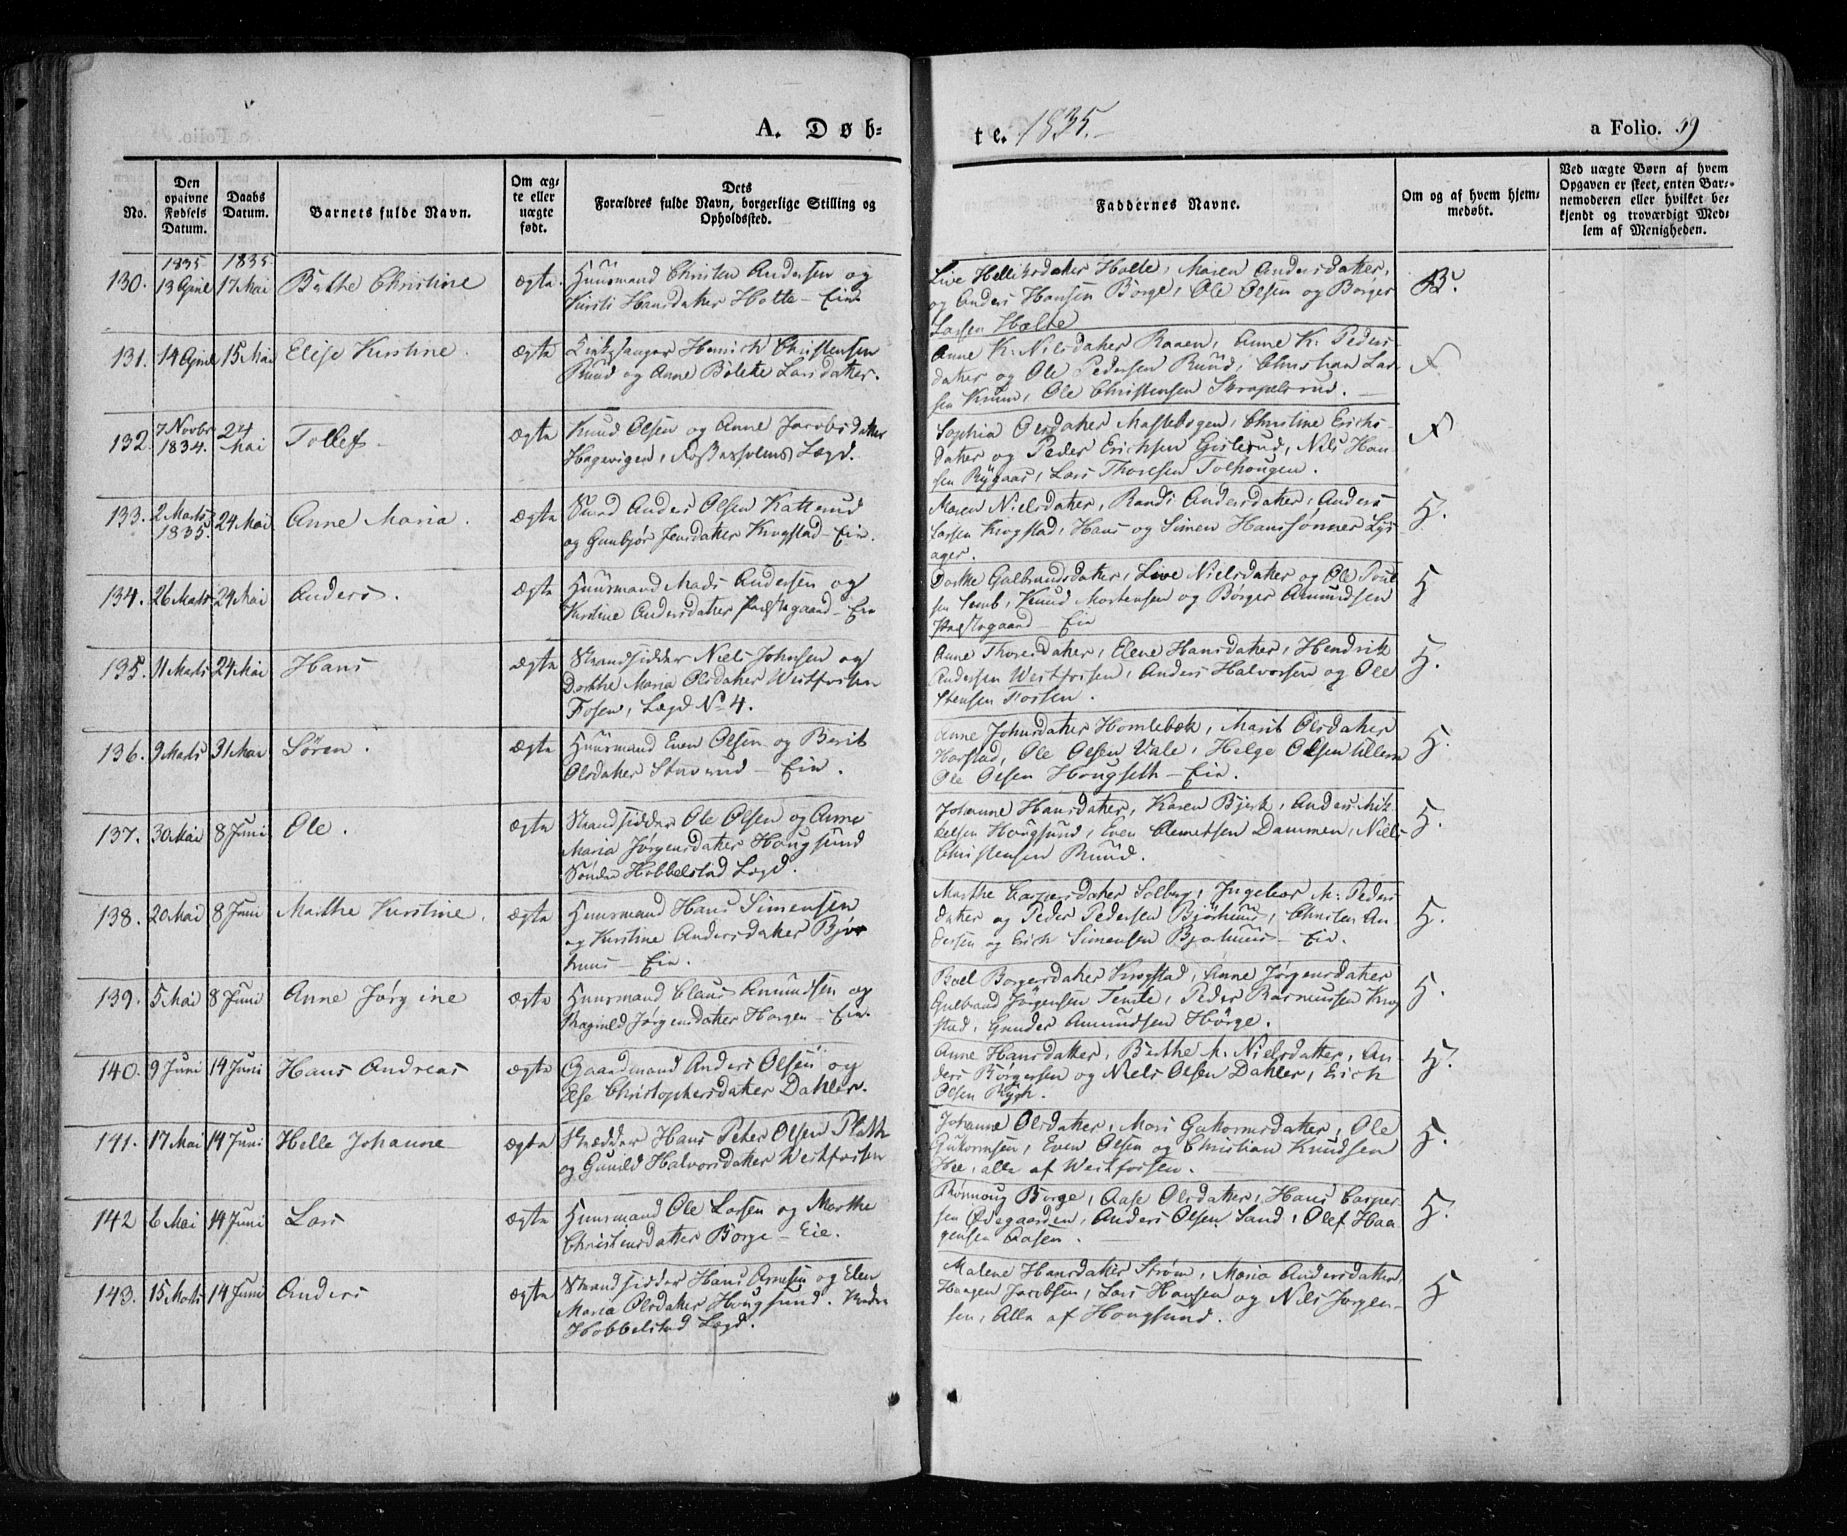 A. Døb-
te. 1835.
a Folio. 59
No.
Den opgivne Fødsels Datum.
Daabs Datum.
Barnets fulde Navn.
Om ægte eller uægte født.
Dets Forældres fulde Navn, borgerlige Stilling og Opholdssted.
Faddernes Navne.
Om og af hvem hjemmedøbt.
Ved uægte Børn af hvem Opgaven er skeet, enten Barnemoderen eller hvilket bekjendt og troværdigt Medlem af Menigheden.
130. 1835 13 April 1835 17 Mai Bæthe Christine ægte.
Huusmand Christen Andersen og
Kirsti Hansdatter Holte - Eie
Live Helliksdatter Holte, Maren Andersdatter,
og Anders Hansen Borge, Ole Olsen og Borger
Larsen Holte
131. 14 April 15 Mai Elise Kirstine. ægte
Kirkesanger Henrich Christensen
Ruud og Anne Bolete Larsdatter.
Anne K. Nilsdatter Raaen, Anne K. Peders-
datter og Ole Pedersen Ruud, Christian Lar-
sen Kruum, Ole Christensen Skrapelsrud.
132. 7 Novbr 1834. 24 Mai Tollef. ægte
Knud Olsen og Anne Jacobsdatter
Hagevigen, Lægd.
Sophia Olesdatter Mastebogen, Christine Erichs-
datter og Peder Erichsen Gislerud, Nils Han-
sen Rygaas, Lars Thoresen Tolshougen.
133. 2 Marts 1835. 24 Mai Anne Maria. ægte
Smed Anders Olsen Katterud
og Gunbjør Jensdatter Krogstad - Eie.
Maren Nielsdatter, Randi Andersdatter, Anders
Larsen Krogstad, Hans og Simen Hanssønner Lys-
ager. H.
134. 26 Marts 24 Mai Anders. ægte
Huusmand Mads Andersen og
Kirstine Andersdatter Præstegaard - Eie
Dorthe Gulbrandsdatter, Live Nielsdatter og Ole Poul-
sen Semb, Knud Mortensen og Børger Amundsen
Præstegaard - Eie H
135. 11 Marts 24 Mai Hans ægte
Strandsidder Niels Johnsen og
Dorthe Maria Olsdatter Westfosen
Fosen, Lægd No 4.
Anne Thoresdatter, Elene Hansdatter, Hendrik
Andersen Westfosen, Anders Halvorsen og Ole
Stensen Fossen. H.
136. 9 Marts 31 Mai Søren. ægte
Huusmand Even Olsen og Berit
Olsdatter Staverud - Eie.
Anne Johnsdatter Homlebæk, Marit Olsdatter
Horstad, Ole Olsen Vale, Helge Olsen Ullern
Ole Olsen Hougseth - Eie. H.
137. 30 Mai 8 Juni Ole. ægte
Strandsidder Ole Olsen og Anne
Maria Jørgensdatter Hougsund
Søndre Hobbelstad Lægd.
Johanne Hansdatter, Karen Bjerk, Anders Mik-
kelsen Hougsund, Even Clemetsen Dammen, Niels
Christensen Ruud. H.
138. 20 Mai 8 Juni Marthe Kirstine. ægte
Huusmand Hans Simensen
og Kirstine Andersdatter Bjør
huus - Eie.
Marthe Caspersdatter Solberg, Ingebor M. Peders
datter og Peder Pedersen Bjørhuus, Christen An-
dersen og Erich Simensen Bjørhuus - Eie. H.
139. 5 Mai 8 Juni Anne Jørgine ægte
Huusmand Claus Amundsen og
Ragnild Jørgensdatter Horgen - Eie.
Boel Borgersdatter Krogstad, Anne Jørgensdatter
Gulbrand Jørgensen Temte, Peder Rasmussen Krog
stad, Gunder Amundsen Hørge. H.
140. 9 Juni 14 Juni Hans Andreas ægte
Gaardmand Anders Olsen og
Else Christophersdatter Dahler.
Anne Hansdatter, Berthe M. Nielsdatter, An-
ders Børgersen og Niels Olsen Dahler, Erich
Olsen Rygh. H.
141. 17 Mai 14 Juni Helle Johanne ægte
Skrædder Hans Peter Olsen Plath
og Gunild Halvorsdatter Westfosen
Johanne Olsdatter, Mari Gutormsdatter, Ole
Gutormsen, Even Olsen og Christian Knudsen
Hee, alle af Westfossen. H.
142 6 Mai 14 Juni Lars ægte
Huusmand Ole Larsen og Marthe
Christensdatter Borge - Eie.
Rønnoug Borge, Aase Olsdatter, Hans Casper-
sen Ødegaarden, Anders Olsen Sand, Olef Haa-
gensen Aasen. H.
143. 15 Marts 14 Juni Anders ægte
Strandsidder Hans Arnesen og Elen
Maria Olsdatter Hougsund.
Hobbelstad Lægd.
Malene Hansdatter Strøm, Maria Andersdatter,
Haagen Jacobsen, Lars Hansen og Nils Jørgen-
sen, Alle af Hougsund. H